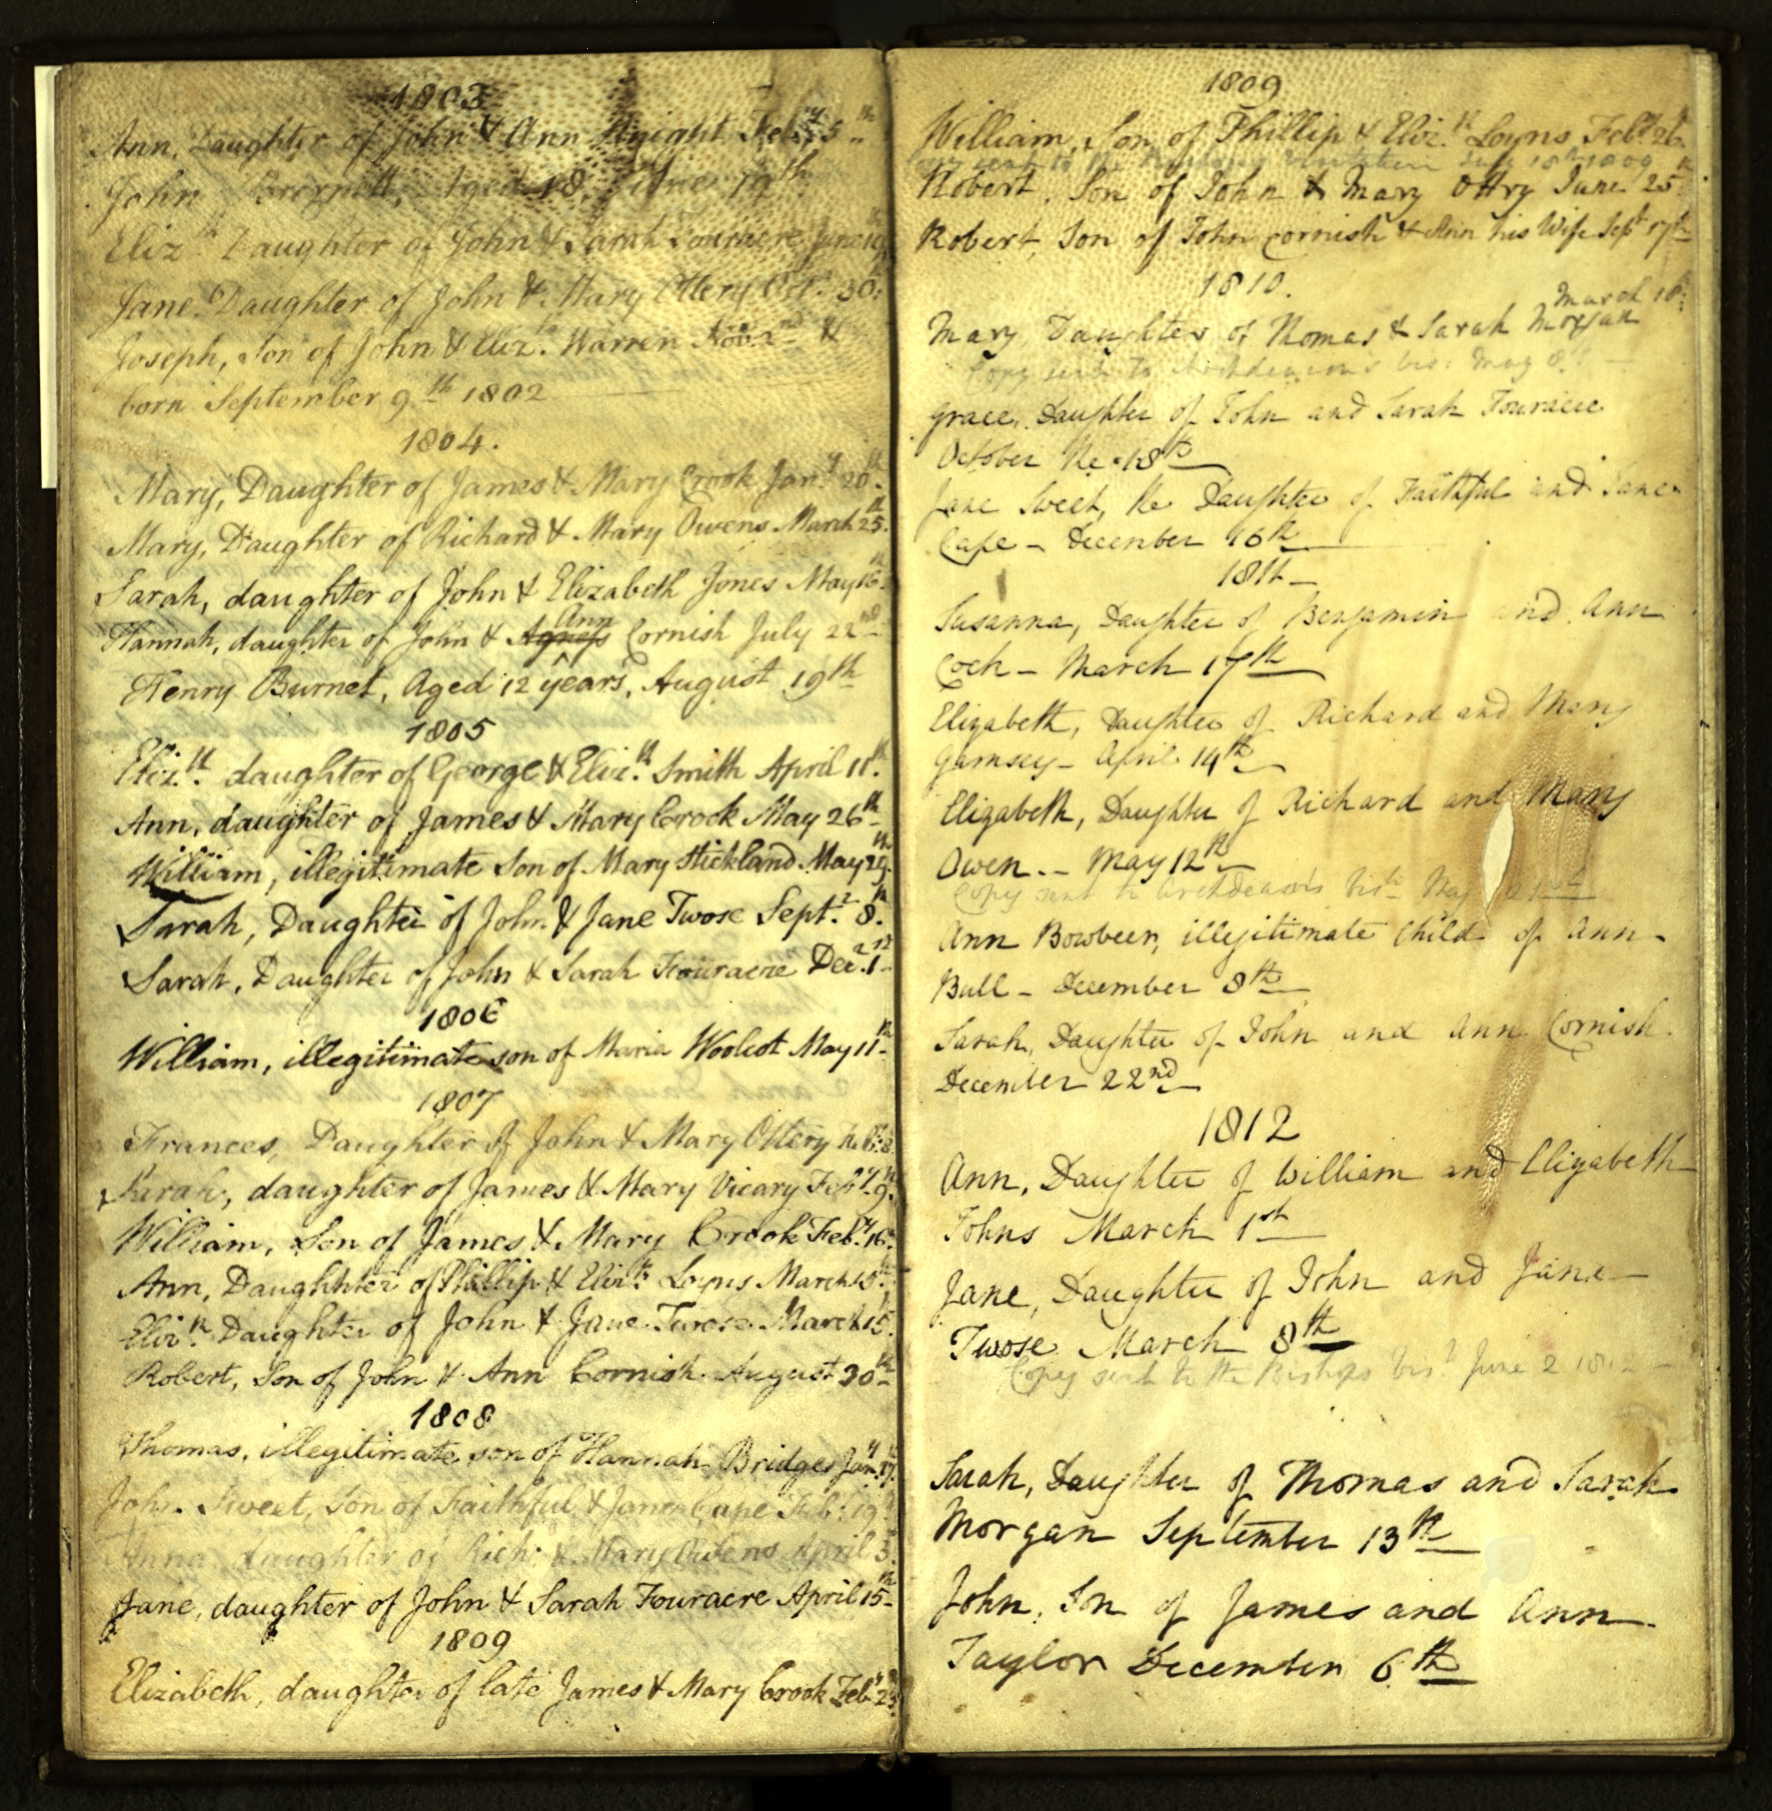 1803
Ann, Daughter of John & Ann Knight Feb.y 5th
John Aged 18, June 19th
Eliz.th Daughter of John & Sarah Fouracre June
Jane Daughter of John & Mary Ottery Oct.r 30th
Joseph, Son of John & Eliz.th Warren Nov. 2nd &
born September 9th 1802
1804.
Mary, Daughter of James & Mary Crook Jan.y 20th
Mary, Daughter of Richard & Mary Owens March 25th
Sarah, daughter of John & Elizabeth Jones May 16th
Hannah, daughter of John & Agness Ann Cornish July 22nd
Henry Burnet, Aged 12 years, August 19th
1805
Eliz.th daughter of George & Eliz.th Smith April 11th
Ann, daughter of James & Mary Crook May 26th
William, illegitimate Son of Mary Stickland May 29th
Sarah, Daughter of John & Jane Twose Sept.r 8th
Sarah, Daughter of John & Sarah Fouracre Dec.r 1st
1806
William, illegitimate son of Maria Woolcot May 11th
1807
Frances, Daughter of John & Mary Ottery Feb. 8
Sarah, daughter of James & Mary Vicary Feb.y 9th
William, Son of James & Mary Crook Feb.y 16th
Ann, Daughter of Phillip & Eliz.th Loyns March 15th
Eliz.th Daughter of John & Jane Twose March 15th
Robert, Son of John & Ann Cornish August 30th
1808
Thomas, illegitimate son of Hannah Bridges Jan.y 17th
John Sweet, Son of Faithful & Jane Cape Feb. 19th
Anna daughter of Rich.d & Mary Owens April 3
Jane, daughter of John & Sarah Fouracre April 15th
1809
Elizabeth, daughter of late James & Mary Crook Feb.y 23
1809
William, Son of Phillip & Eliz.th Loyns Feb.y 26th
sent to the Visitation July 18th 1809
Robert, Son of John & Mary Ottry June 25th
Robert, Son of John Cornish & Ann his Wife Sept 17th
1810.
March 18th
Mary Daughter of Thomas & Sarah Morgan
Copy sent to Archdeacon's vis: May 8th
Grace, Daughter of John and Sarah Fouracre
October the 18th
Jane Sweet, the Daughter of Faithful and Jane
Cape - December 16th
1811 -
Susanna, Daughter of Benjamin and Ann
Cock - March 17th
Elizabeth, Daughter of Richard and Mary
Garnsey - April 14th
Elizabeth, Daughter of Richard and Mary
Owen. - May 12th
Copy sent to Archdeacon's vis.n May 21st
Ann Bowbeer, illegitimate Child of Ann
Bull - December 8th
Sarah, Daughter of John and Ann Cornish
December 22nd
1812
Ann, Daughter of William and Elizabeth
Johns March 1st
Jane, Daughter of John and Jane
Twose March 8th
Copy sent to the Bishops vis.n June 2 1812
Sarah, Daughter of Thomas and Sarah
Morgan September 13th
John, Son of James and Ann
Taylor December 6th